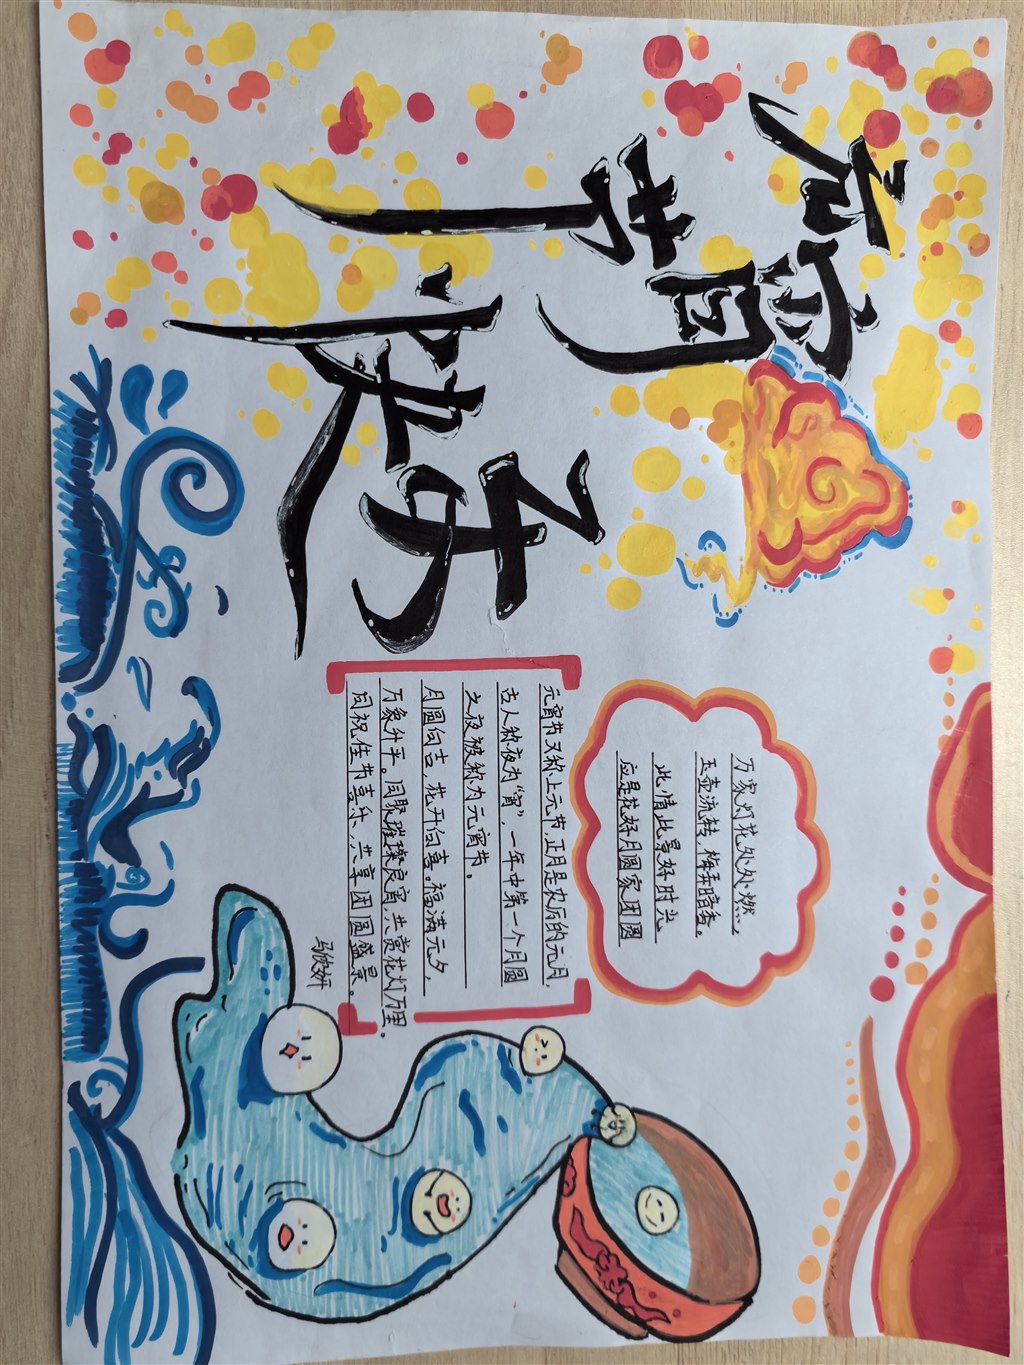 元宵
节快乐
万家灯花处处燃,
玉壶流转,梅弄暗香。
此情此景好时光
应是花好月圆家团圆
元宵节又称上元节,正月是农历的元月,
古人称夜为“宵”,一年中第一个月圆
之夜被称为元宵节。
月圆向吉,花开向喜。福满元夕,
万象升平。同聚璀璨良宵,共赏花灯万里。
同祝佳节喜乐,共享团圆盛景。